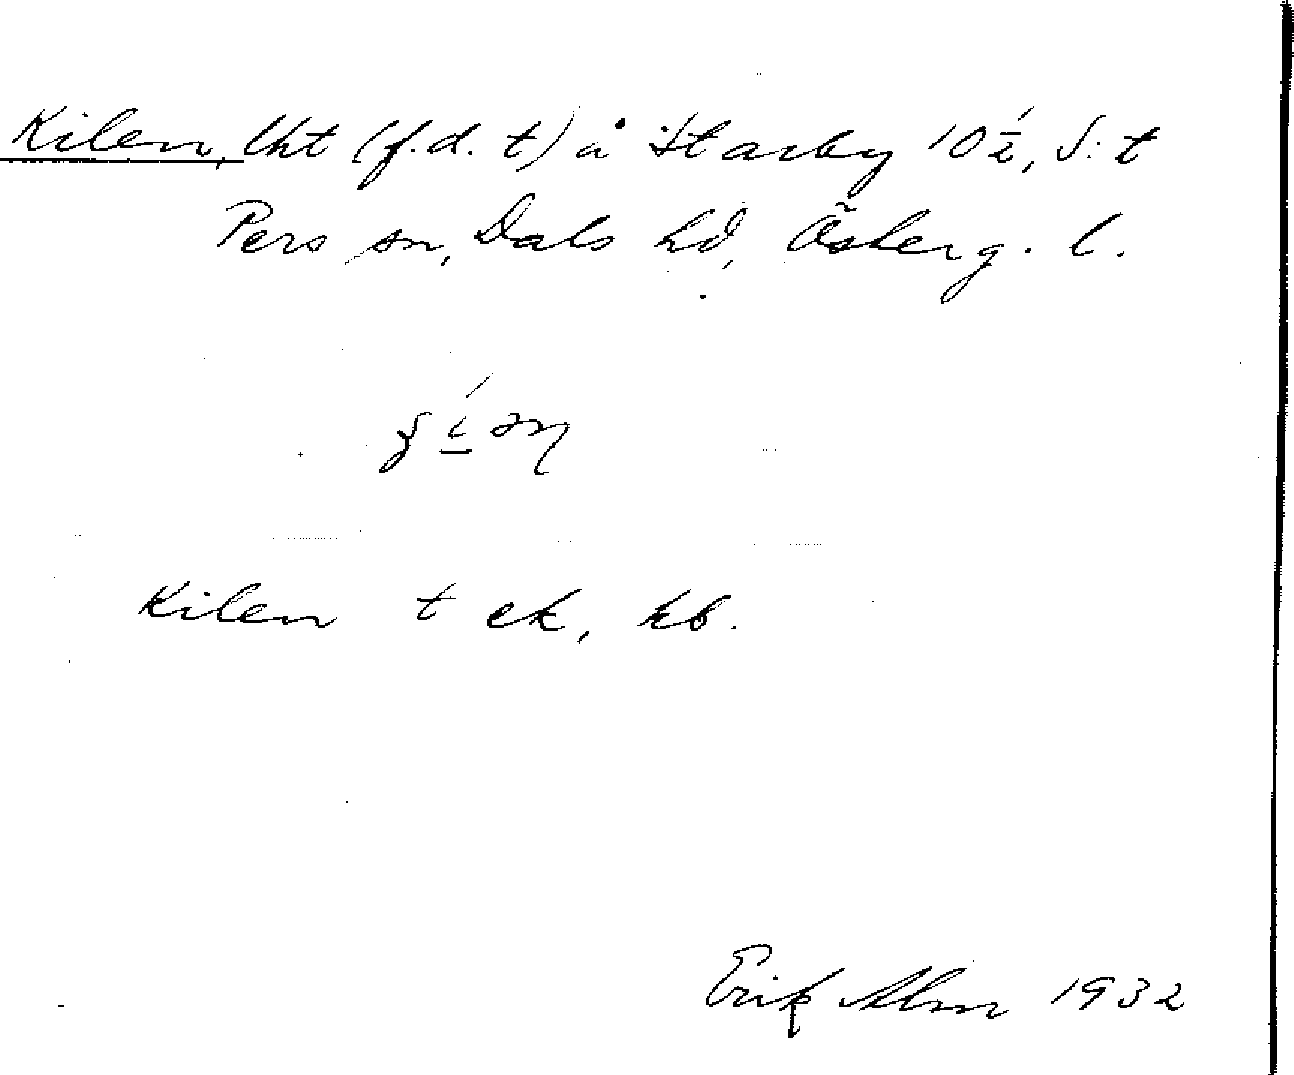 Kilen, lht (f.d. t) å Starby 10 ½, S:t
Pers sn, Dals hd, Österg. l.
Kilen t ek, kb.
Erik Alm 1932